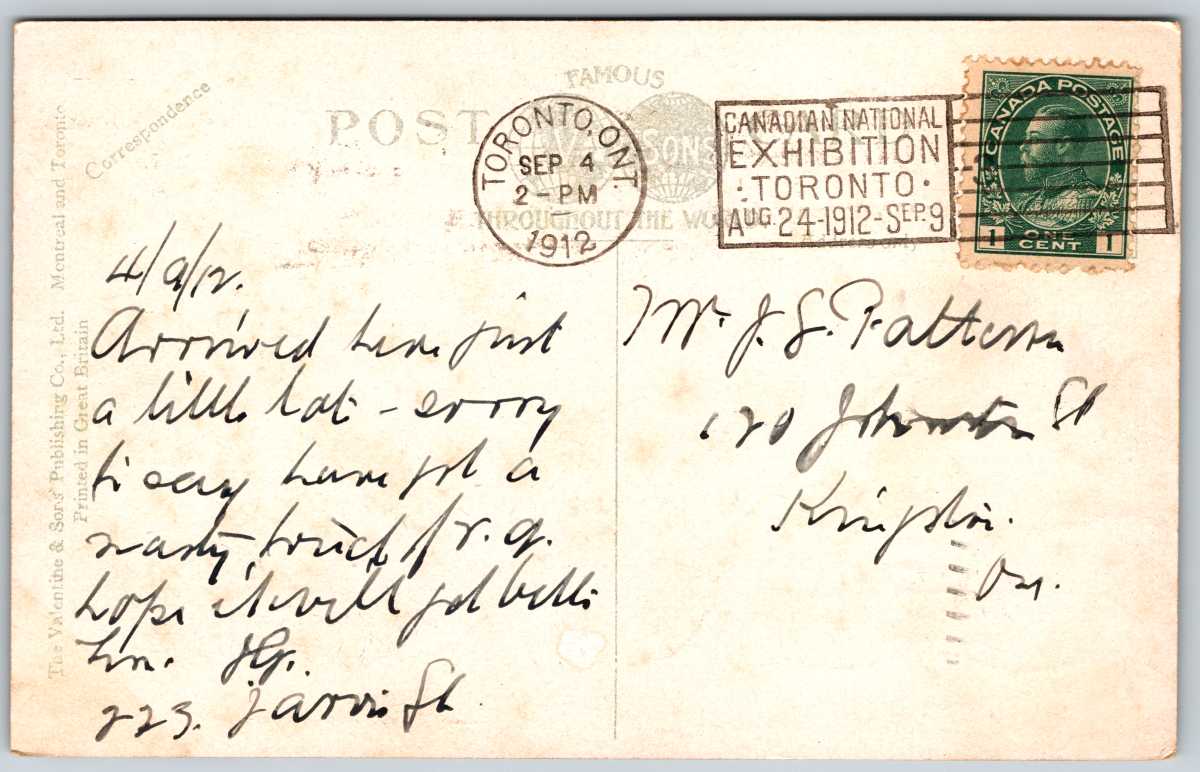 Correspondence
POST
FAMOUS
SONS
THROUGHOUT THE WORLD
TORONTO, ONT.
SEP 4
2 - PM
1912
CANADIAN NATIONAL
EXHIBITION
· TORONTO ·
AUG 24-1912-SEP. 9
CANADA POSTAGE
1 ONE CENT 1
The Valentine & Sons' Publishing Co., Ltd. Montreal and Toronto
Printed in Great Britain
4/9/12.
Arrived here just
a little late - sorry
to say have got a
nasty touch of
hope it will get better
here.
223. Jarvis St
Mr. J. S. Patterson
120 Johnston St
Kingston.
Ont.